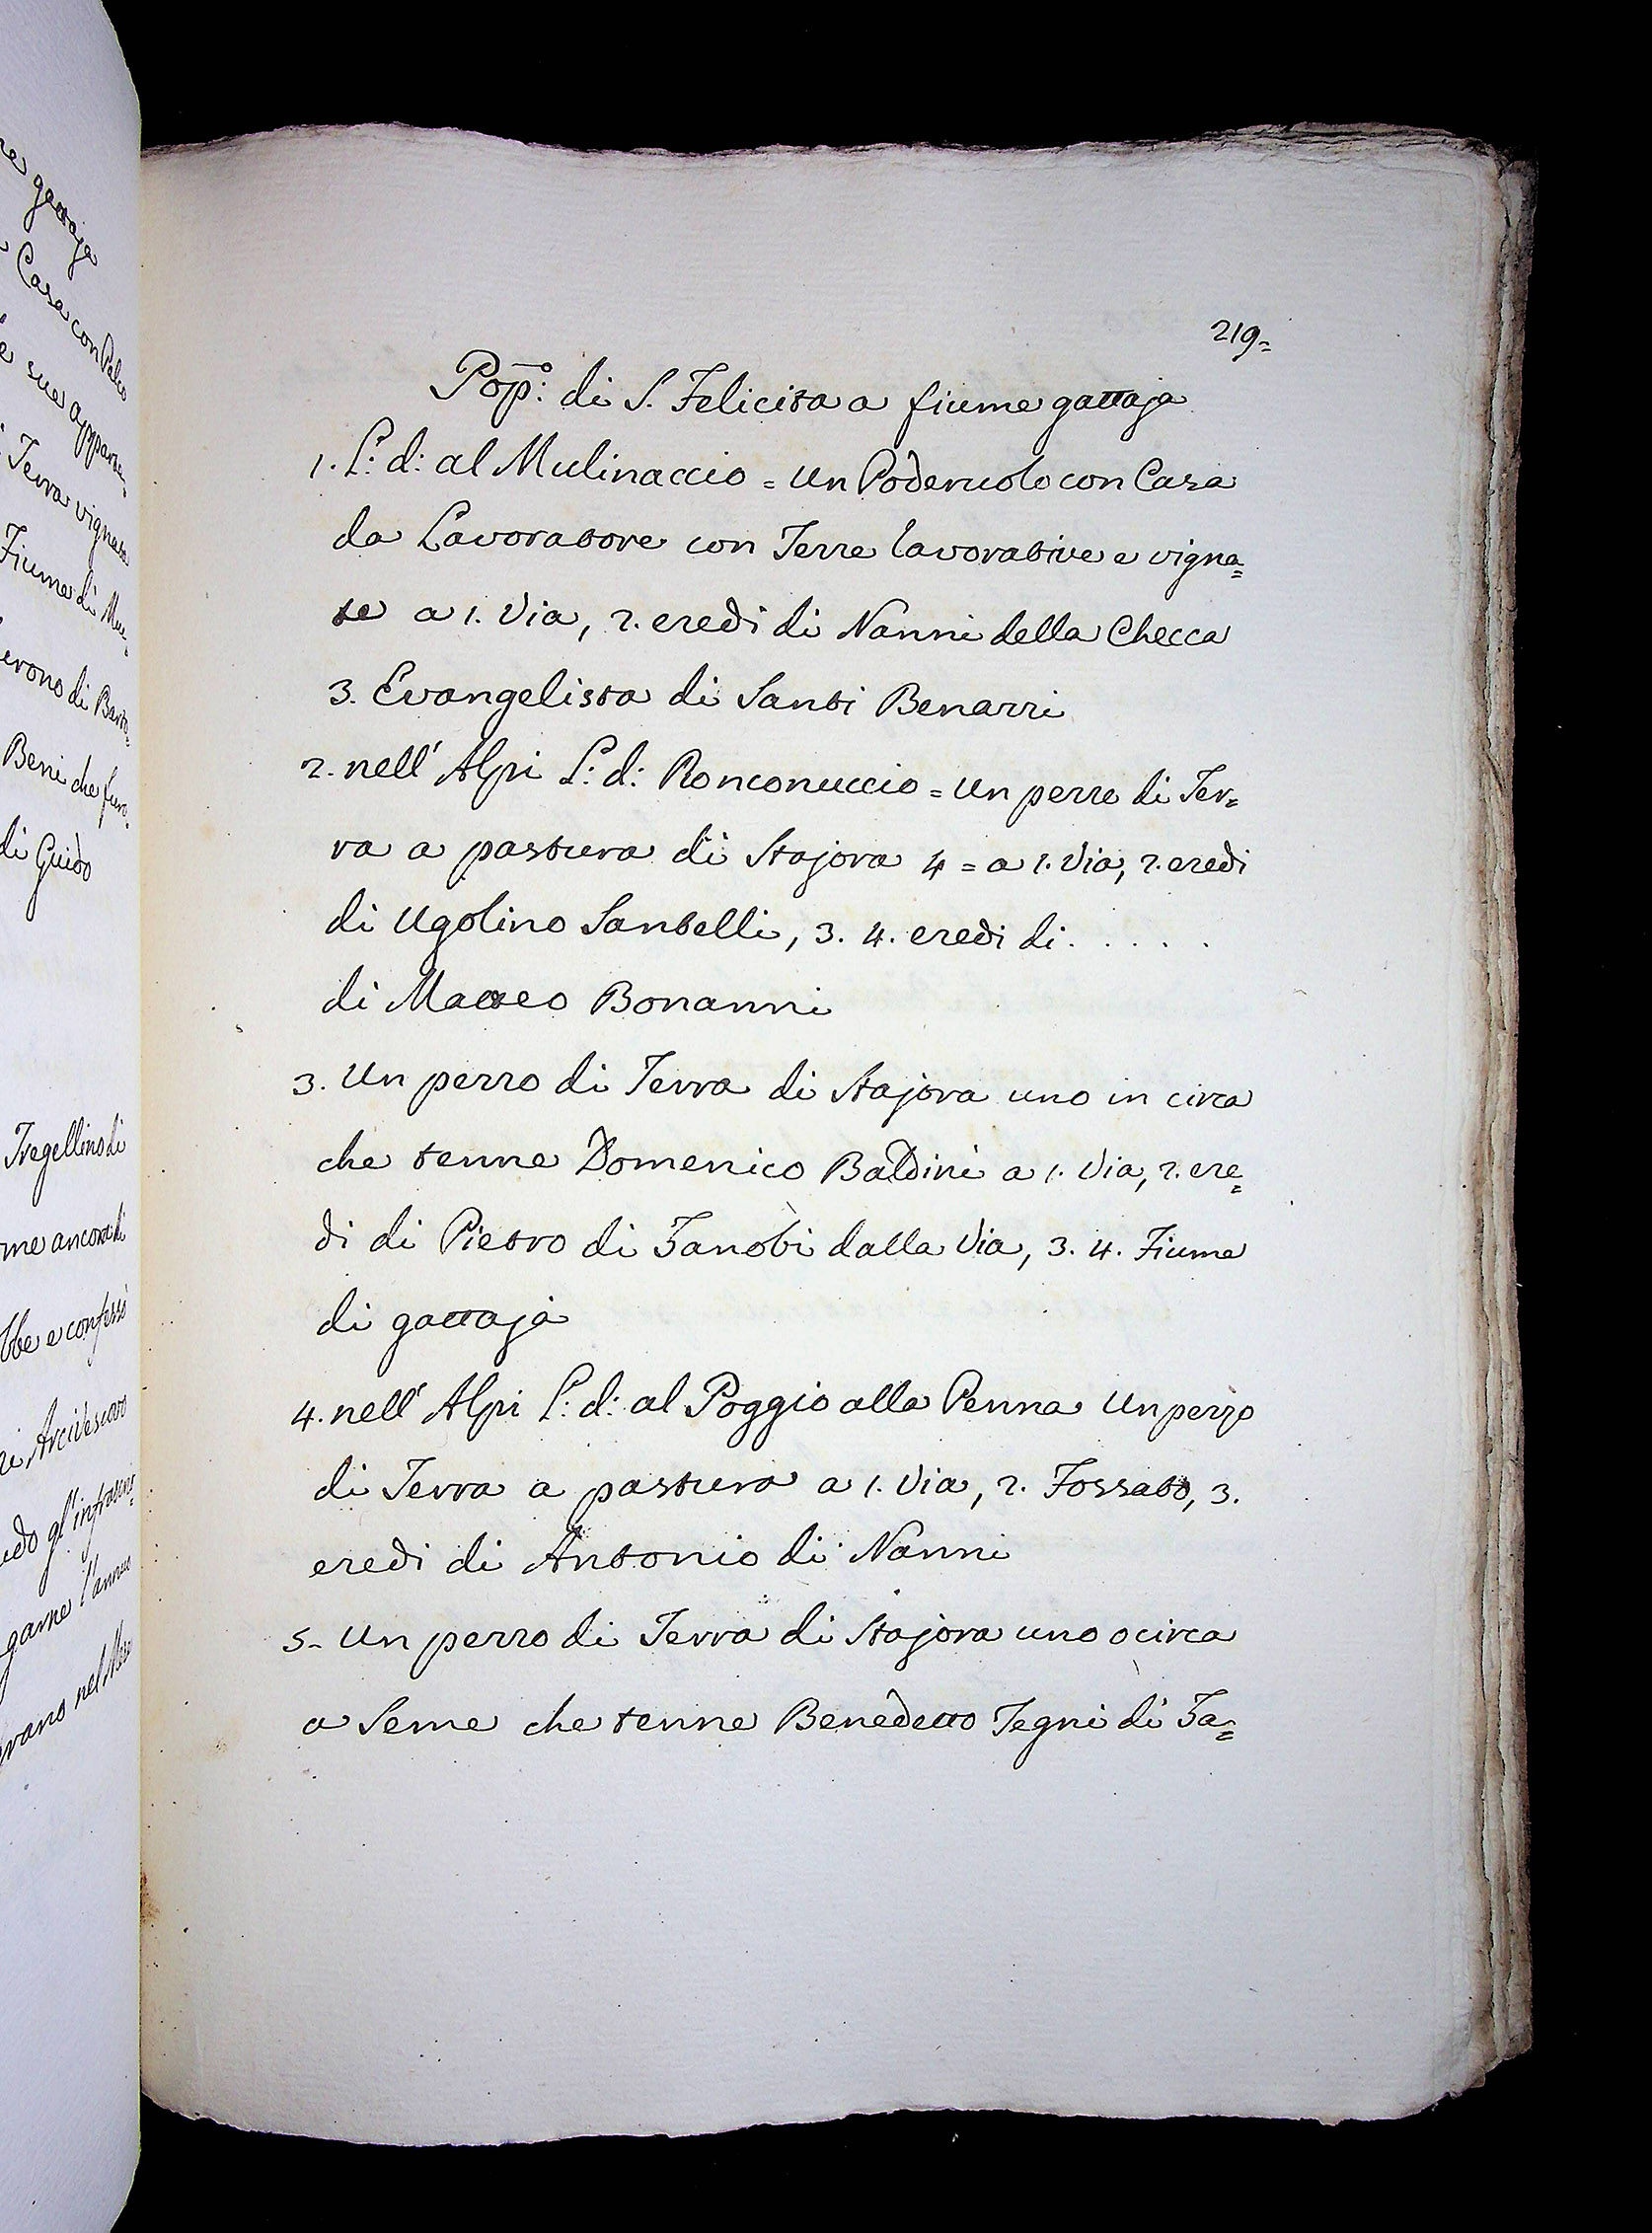 re gattaja
Casa con Palco
e sue apparte=
Terra vignata
Fiume di Mu=
erono di Barto=
Beni che furo=
di Guido
Tregellino di
me ancora di
bbe e confessò
Arcivescovo
do gl'infrascrit=
garne l'annuo
vano nel Mese
219=
Pop̄º: di S. Felicita a fiume gattaja
1. L: d: al Mulinaccio = Un Poderuolo con Casa
da Lavoratore con Terre lavorative e vigna=
te a 1. Via, 2. eredi di Nanni della Checca
3. Evangelista di Santi Benazzi
2. nell' Alpi L: d: Ronconuccio = Un pezze di Ter=
ra a pastura di Stajora 4 = a 1. Via, 2. eredi
di Ugolino Santelli, 3. 4. eredi di . . . . .
di Matteo Bonanni
3. Un pezzo di Terra di Stajora uno in circa
che tenne Domenico Baldini a 1. Via, 2. ere=
di di Pietro di Zanobi dalla Via, 3. 4. Fiume
di gattaja
4. nell' Alpi L: d: al Poggio alla Penna Un pezzo
di Terra a pastura a 1. Via, 2. Fossato, 3.
eredi di Antonio di Nanni
5. Un pezzo di Terra di Stajora uno o circa
a Seme che tenne Benedetto Tegni di Za=